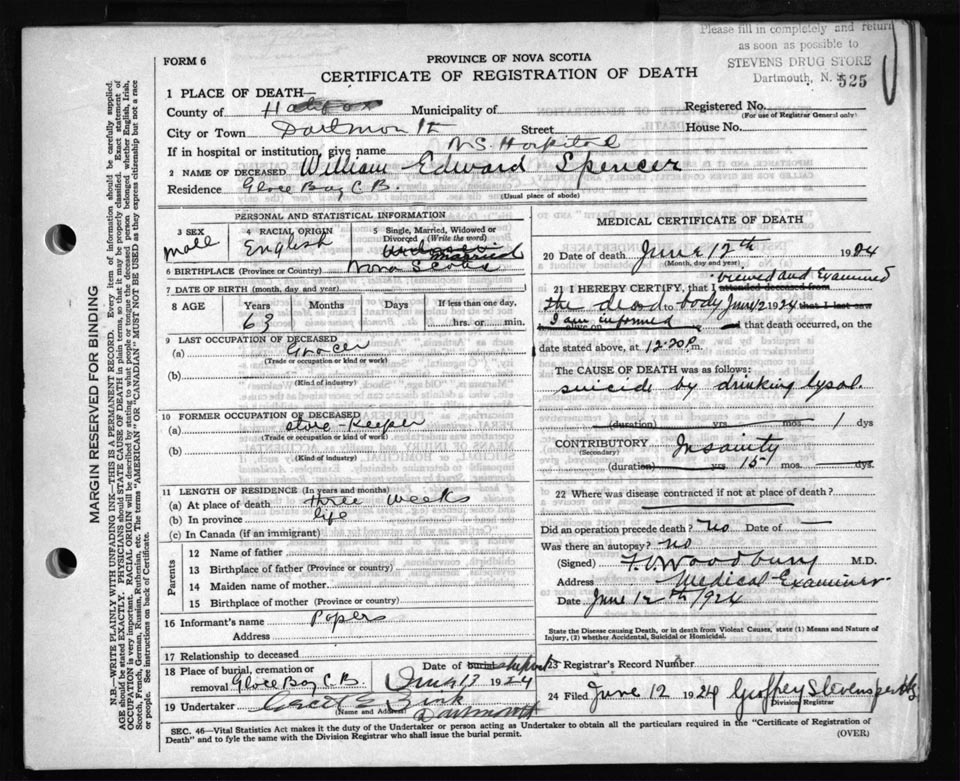 Please fill in completely and return
as soon as possible to
STEVENS DRUG STORE
Dartmouth, N. S.
525
FORM 6
PROVINCE OF NOVA SCOTIA
CERTIFICATE OF REGISTRATION OF DEATH
1 PLACE OF DEATH—
County of Halifax Municipality of Registered No.
(For use of Registrar General only)
City or Town Dartmouth Street House No.
If in hospital or institution, give name N.S. Hospital
2 NAME OF DECEASED William Edward Spencer
Residence Glace Bay C.B.
(Usual place of abode)
PERSONAL AND STATISTICAL INFORMATION
3 SEX male
4 RACIAL ORIGIN English
5 Single, Married, Widowed or Divorced (Write the word)
married
6 BIRTHPLACE (Province or Country) Nova Scotia
7 DATE OF BIRTH (month, day and year)
8 AGE Years Months Days If less than one day,
63 hrs. or min.
9 LAST OCCUPATION OF DECEASED
(a) Grocer
(Trade or occupation or kind of work)
(b)
(Kind of industry)
10 FORMER OCCUPATION OF DECEASED
(a) store-keeper
(Trade or occupation or kind of work)
(b)
(Kind of industry)
11 LENGTH OF RESIDENCE (In years and months)
(a) At place of death three weeks
(b) In province life
(c) In Canada (if an immigrant)
Parents
12 Name of father
13 Birthplace of father (Province or Country)
14 Maiden name of mother
15 Birthplace of mother (Province or country)
16 Informant's name Papers
Address
17 Relationship to deceased
18 Place of burial, cremation or Date of burial
removal Glace Bay C.B. June 13 1924
19 Undertaker
(Name and Address) Dartmouth
MEDICAL CERTIFICATE OF DEATH
20 Date of death June 12th 1924
(Month, day and year)
viewed and Examined
21 I HEREBY CERTIFY, that I attended deceased from
the dead body June 12 1924 that I last saw
I am informed alive on that death occurred, on
date stated above, at 12.20 p. m.
The CAUSE OF DEATH was as follows:
suicide by drinking lysol.
(duration) yrs mos. 1 dys
CONTRIBUTORY Insanity
(Secondary)
(duration) yrs 15 mos. dys.
22 Where was disease contracted if not at place of death?
Did an operation precede death? no Date of —
Was there an autopsy? no
(Signed) F.V. Woodbury M.D.
Address Medical Examiner
Date June 12th 1924
State the Disease causing Death, or in death from Violent Causes, state (1) Means and Nature of
Injury, (2) whether Accidental, Suicidal or Homicidal.
23 Registrar's Record Number
24 Filed June 12 1924 Geoffrey Stevens
Division Registrar
SEC. 46—Vital Statistics Act makes it the duty of the Undertaker or person acting as Undertaker to obtain all the particulars required in the "Certificate of Registration of
Death" and to fyle the same with the Division Registrar who shall issue the burial permit. (OVER)
MARGIN RESERVED FOR BINDING
N.B.—WRITE PLAINLY WITH UNFADING INK—THIS IS A PERMANENT RECORD. Every item of information should be carefully supplied.
AGE should be stated EXACTLY. PHYSICIANS should STATE CAUSE OF DEATH in plain terms, so that it may be properly classified. Exact statement of
OCCUPATION is very important. RACIAL ORIGIN will be described by stating to what people or tongue the deceased person belonged whether English, Irish,
Scotch, French, German, Russian, Ruthenian, etc. The terms "AMERICAN" or "CANADIAN" MUST NOT BE USED as they express citizenship but not a race
or people. See instructions on back of Certificate.